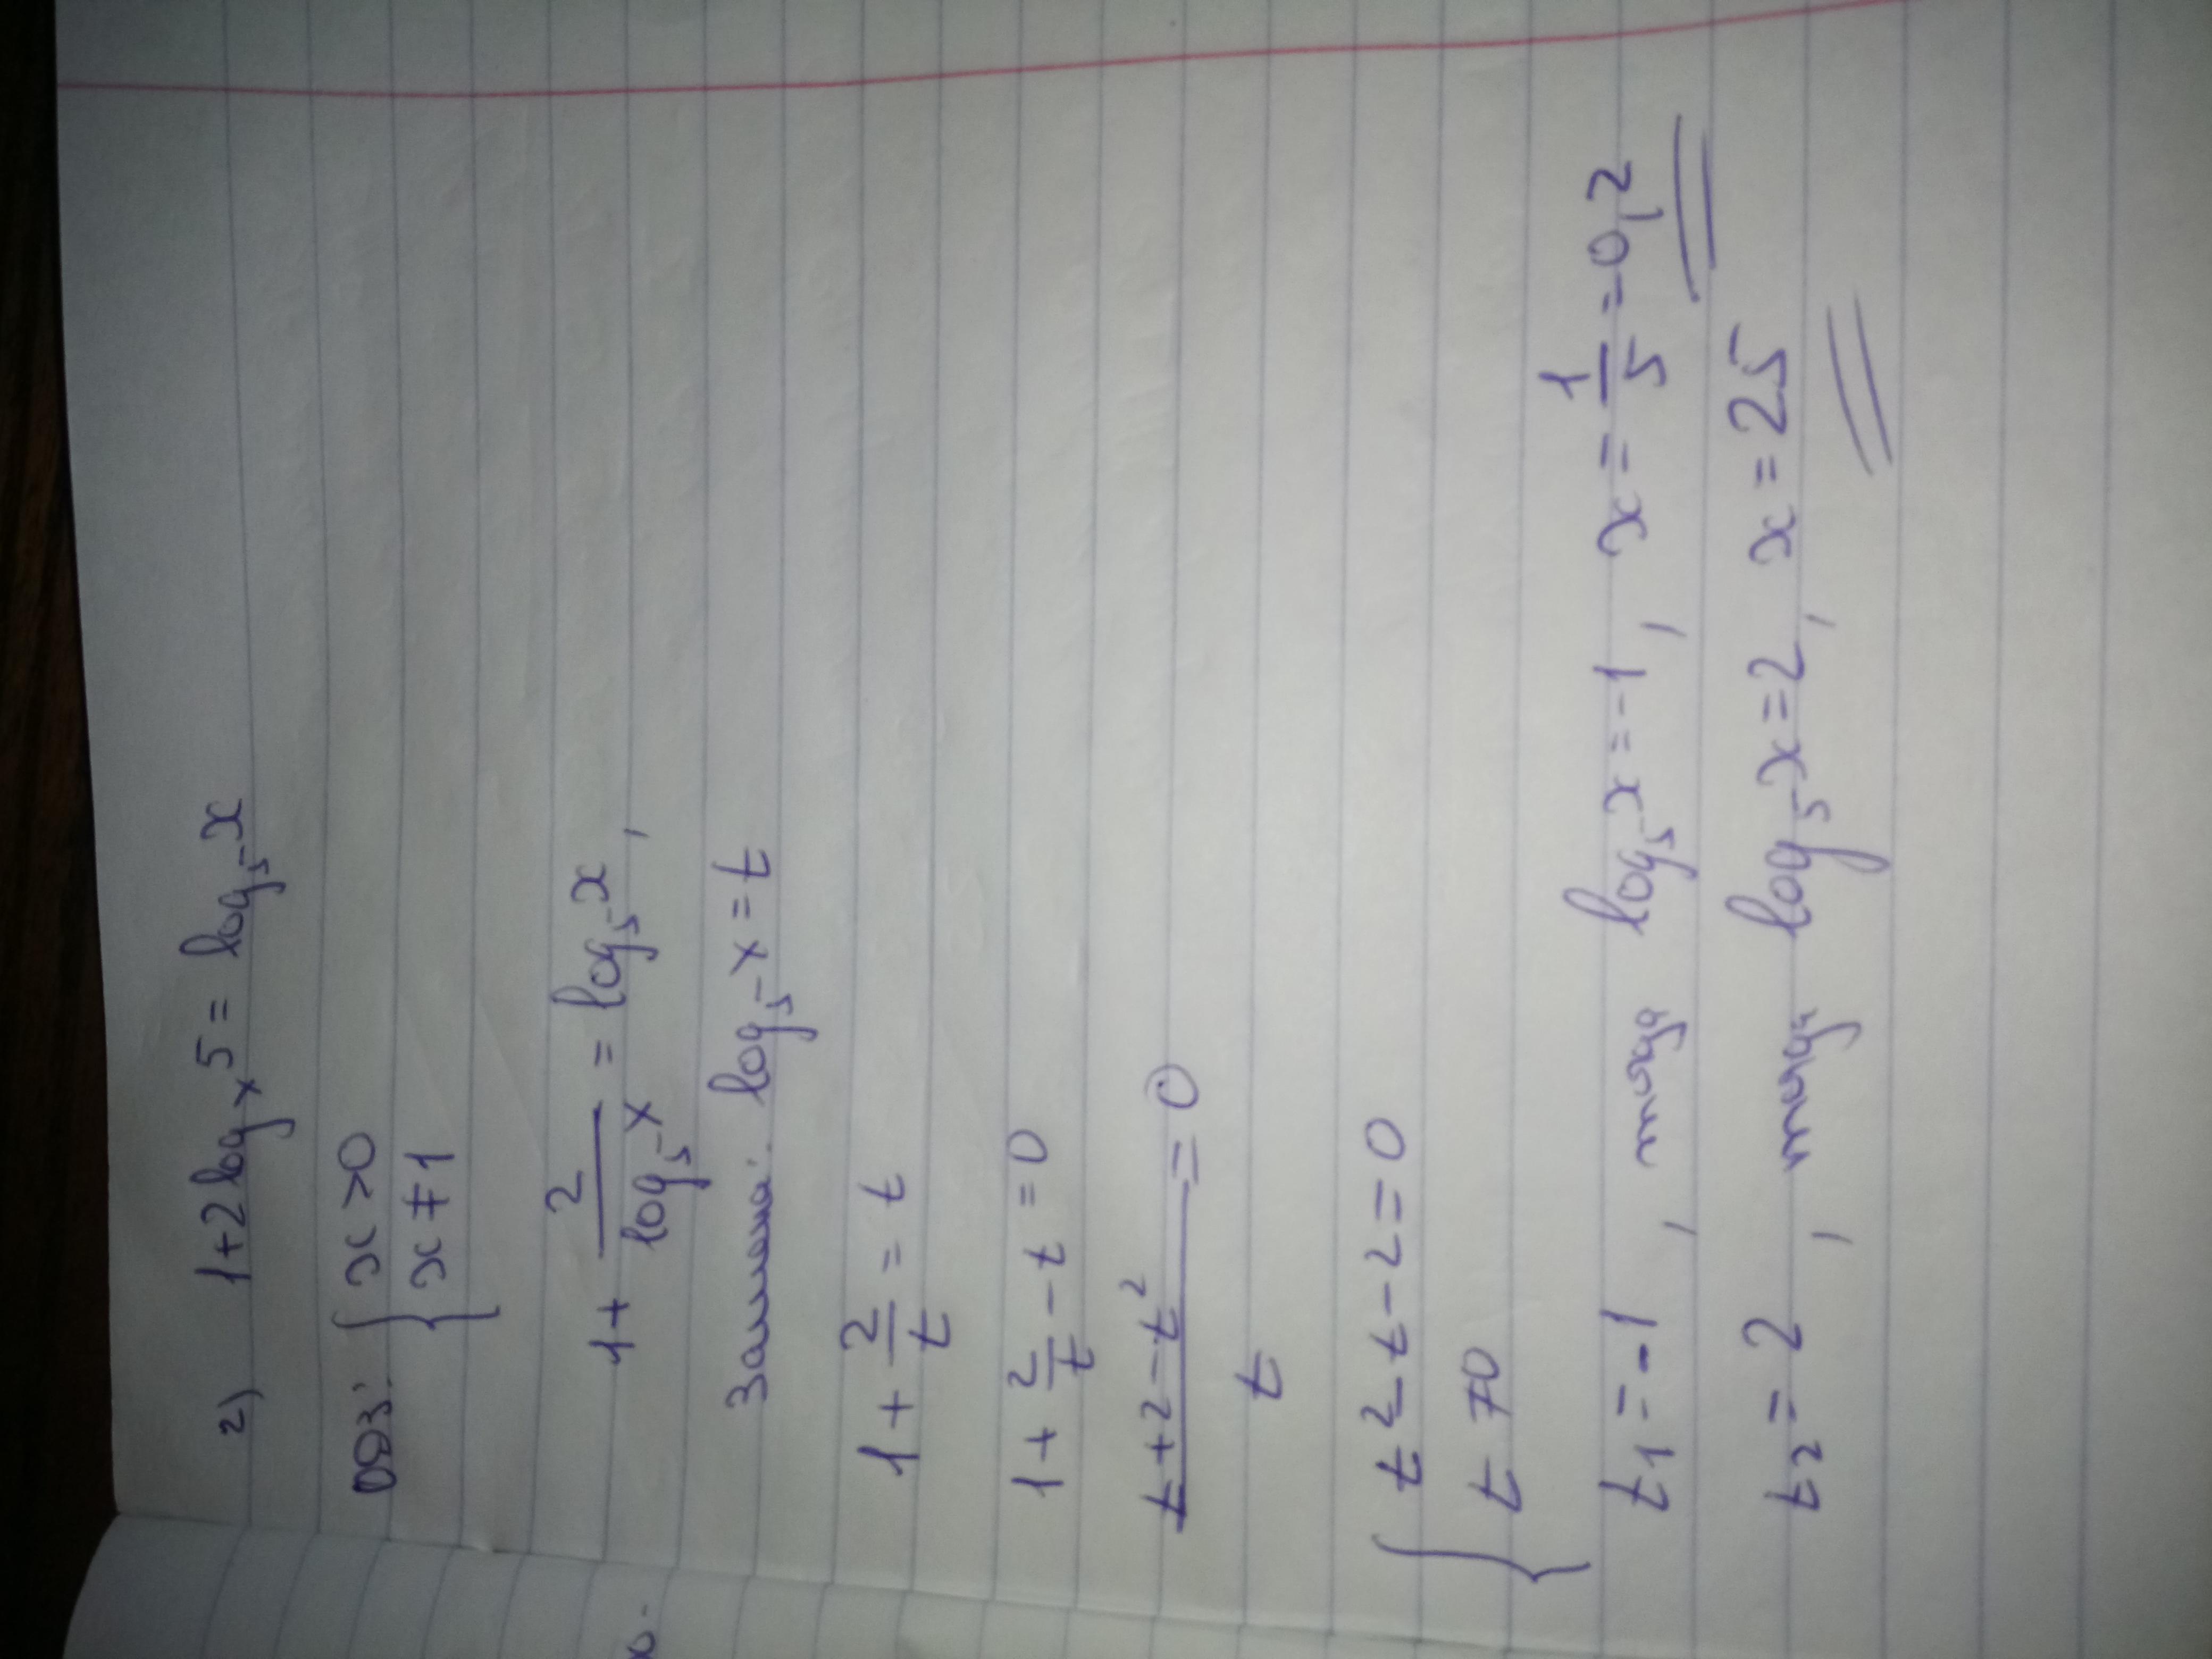 2) 1+2log_x 5 = log_5 x
ОДЗ: { x>0
x≠1
1+ 2/log_5 x = log_5 x,
Замена: log_5 x = t
1 + 2/t = t
1 + 2/t - t = 0
(t+2-t²)/t = 0
{ t²-t-2=0
t ≠0
t₁=-1, тогда log_5 x=-1, x=1/5=0,2
t₂=2, тогда log_5 x=2, x=25